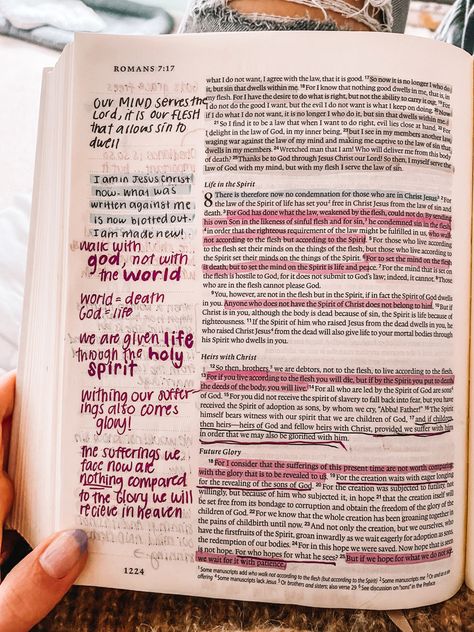 ROMANS 7:17
OUR MIND SERVES THE
LORD, IT IS OUR FLESH
THAT ALLOWS SIN TO
DWELL
I am in Jesus Christ
now. What was
written against me
is now blotted out.
I am made new!
walk with
god, not with
the world
world = death
God = life
we are given life
through the holy
spirit
withing our suffer
ings also comes
glory!
the sufferings we
face now are
nothing compared
to the glory we will
recieve in heaven
1224
what I do not want, I agree with the law, that it is good. 17 So now it is no longer I who do
it, but sin that dwells within me. 18 For I know that nothing good dwells in me, that is, in
my flesh. For I have the desire to do what is right, but not the ability to carry it out. 19 For
I do not do the good I want, but the evil I do not want is what I keep on doing. 20 Now
if I do what I do not want, it is no longer I who do it, but sin that dwells within me.
21 So I find it to be a law that when I want to do right, evil lies close at hand. 22 For
I delight in the law of God, in my inner being, 23 but I see in my members another law
waging war against the law of my mind and making me captive to the law of sin that
dwells in my members. 24 Wretched man that I am! Who will deliver me from this body
of death? 25 Thanks be to God through Jesus Christ our Lord! So then, I myself serve the
law of God with my mind, but with my flesh I serve the law of sin.
Life in the Spirit
8 There is therefore now no condemnation for those who are in Christ Jesus. 2 For
the law of the Spirit of life has set you free in Christ Jesus from the law of sin and
death. 3 For God has done what the law, weakened by the flesh, could not do. By sending
his own Son in the likeness of sinful flesh and for sin, he condemned sin in the flesh,
4 in order that the righteous requirement of the law might be fulfilled in us, who walk
not according to the flesh but according to the Spirit. 5 For those who live according
to the flesh set their minds on the things of the flesh, but those who live according to
the Spirit set their minds on the things of the Spirit. 6 For to set the mind on the flesh
is death, but to set the mind on the Spirit is life and peace. 7 For the mind that is set on
the flesh is hostile to God, for it does not submit to God's law; indeed, it cannot. 8 Those
who are in the flesh cannot please God.
9 You, however, are not in the flesh but in the Spirit, if in fact the Spirit of God dwells
in you. Anyone who does not have the Spirit of Christ does not belong to him. 10 But if
Christ is in you, although the body is dead because of sin, the Spirit is life because of
righteousness. 11 If the Spirit of him who raised Jesus from the dead dwells in you, he
who raised Christ Jesus from the dead will also give life to your mortal bodies through
his Spirit who dwells in you.
Heirs with Christ
12 So then, brothers, we are debtors, not to the flesh, to live according to the flesh.
13 For if you live according to the flesh you will die, but if by the Spirit you put to death
the deeds of the body, you will live. 14 For all who are led by the Spirit of God are sons
of God. 15 For you did not receive the spirit of slavery to fall back into fear, but you have
received the Spirit of adoption as sons, by whom we cry, "Abba! Father!" 16 The Spirit
himself bears witness with our spirit that we are children of God, 17 and if children,
then heirs—heirs of God and fellow heirs with Christ, provided we suffer with him
in order that we may also be glorified with him.
Future Glory
18 For I consider that the sufferings of this present time are not worth comparing
with the glory that is to be revealed to us. 19 For the creation waits with eager longing
for the revealing of the sons of God. 20 For the creation was subjected to futility, not
willingly, but because of him who subjected it, in hope 21 that the creation itself will
be set free from its bondage to corruption and obtain the freedom of the glory of the
children of God. 22 For we know that the whole creation has been groaning together in
the pains of childbirth until now. 23 And not only the creation, but we ourselves, who
have the firstfruits of the Spirit, groan inwardly as we wait eagerly for adoption as sons,
the redemption of our bodies. 24 For in this hope we were saved. Now hope that is seen
is not hope. For who hopes for what he sees? 25 But if we hope for what we do not see,
we wait for it with patience.
1 Some manuscripts add who walk not according to the flesh (but according to the Spirit)
offering 6 Some manuscripts lack Jesus 7 Or brothers and sisters; also verse 29 8 See discussion on "sons" in the Preface